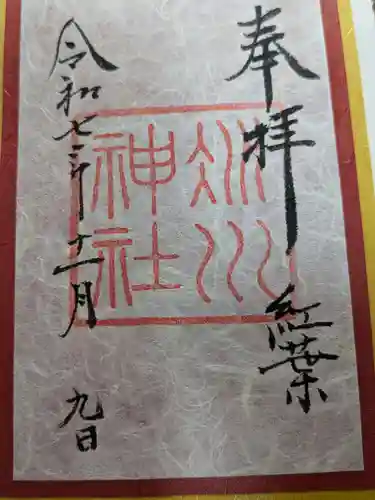 奉拝
紅葉
氷川
神社
令和七年十一月九日